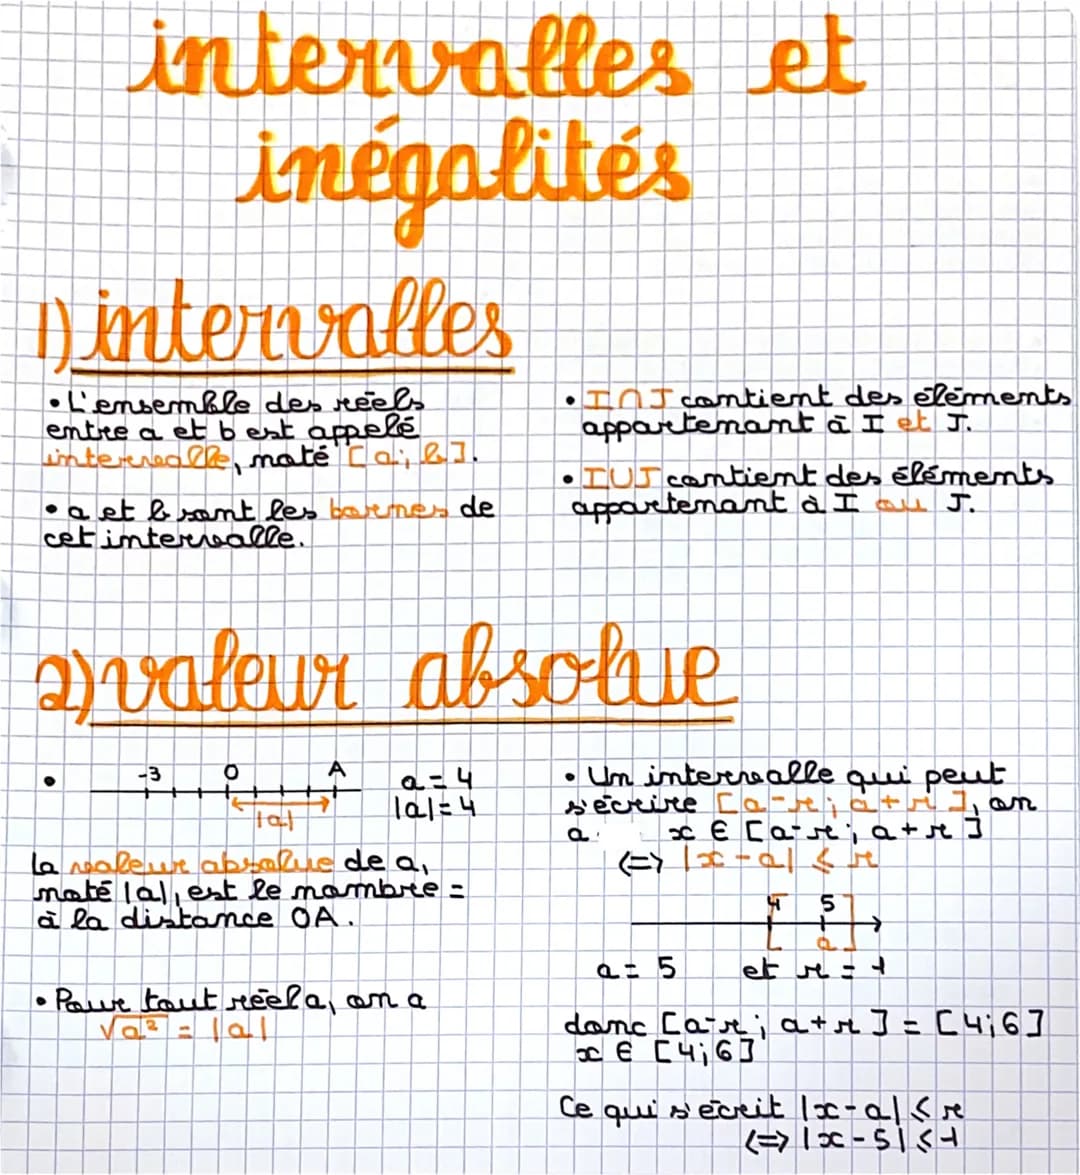 intervalles et
inégalités
1) intervalles
• L'ensemble des réels
entre a et b est appelé
intervalle, noté [a; b].
• a et b sont les bornes de
cet intervalle.
• I∩J contient des éléments
appartenant à I et J.
• I∪J contient des éléments
appartenant à I ou J.
2) valeur absolue
• -3 0 A
|a|
a = 4
|a| = 4
La valeur absolue de a,
noté |a|, est le nombre =
à la distance OA.
• Pour tout réel a, on a
√a² = |a|
• Un intervalle qui peut
s'écrire [a-r; a+r], on
a x ∈ [a-r; a+r]
(=) |x-a| ≤ r
4 5
a
a = 5 et r = 1
donc [a-r; a+r] = [4;6]
x ∈ [4;6]
Ce qui s'écrit |x-a| ≤ r
(=) |x-5| ≤ 1